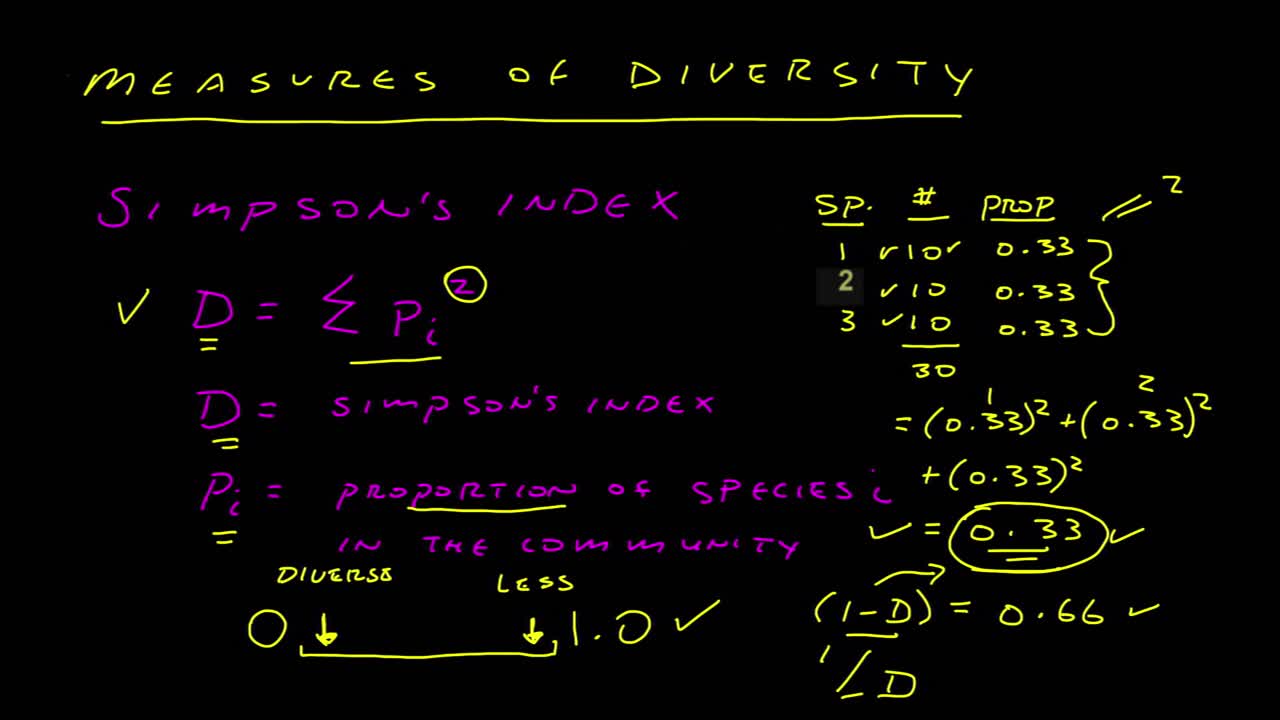 MEASURES OF DIVERSITY
SIMPSON'S INDEX
D = Σ Pi²
D = SIMPSON'S INDEX
Pi = PROPORTION OF SPECIES i
IN THE COMMUNITY
DIVERSE LESS
0 ↓ ↓ 1.0 ✓
SP. # PROP // 2
1 ✓10✓ 0.33
2 ✓10 0.33
3 ✓10 0.33
30
1 2
= (0.33)² + (0.33)²
+ (0.33)²
✓ = 0.33 ✓
(1-D) = 0.66 ✓
1/D